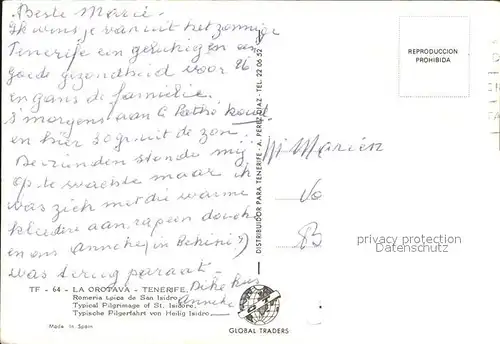 Beste Marie -
Ik wens je vanuit het zonnige
Tenerife een gelukkigen en
goede gezondheid voor 86
en gans de familie.
s'morgens aan 't Pothé koud
en hier 30 gr uit de zon.
De vrienden stonden mij
op te wachten maar ik
was zich met die warme
kleeren aan, rap een douche
en ons Anneke (in Bekini)
was terug paraat -
Dikke kus
Anneke
Mariën
REPRODUCCION
PROHIBIDA
DISTRIBUIDOR PARA TENERIFE - A. PEREZ DIAZ - TEL. 22 06 52
TF - 64 - LA OROTAVA - TENERIFE
Romería típica de San Isidro
Typical Pilgrimage of St. Isidore.
Typische Pilgerfahrt von Heilig Isidro
Made in Spain
GLOBAL TRADERS
privacy protection
Datenschutz